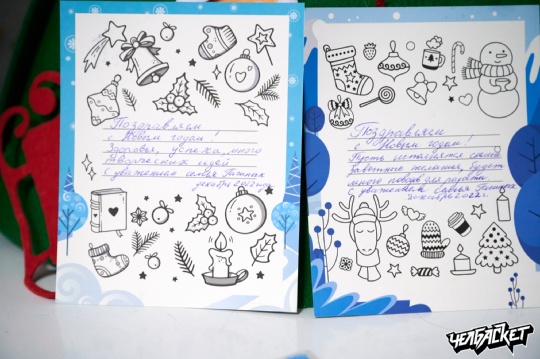 Поздравляем!
с Новым годом!
Здоровья, успеха, много
творческих идей
С уважением семья
декабрь 2022 год
Поздравляем
с Новым годом!
Пусть исполнятся самые
заветные желания, будет
много поводов для радости
С уважением Семья
декабрь 2022 г.
ЧЕЛБАСКЕТ